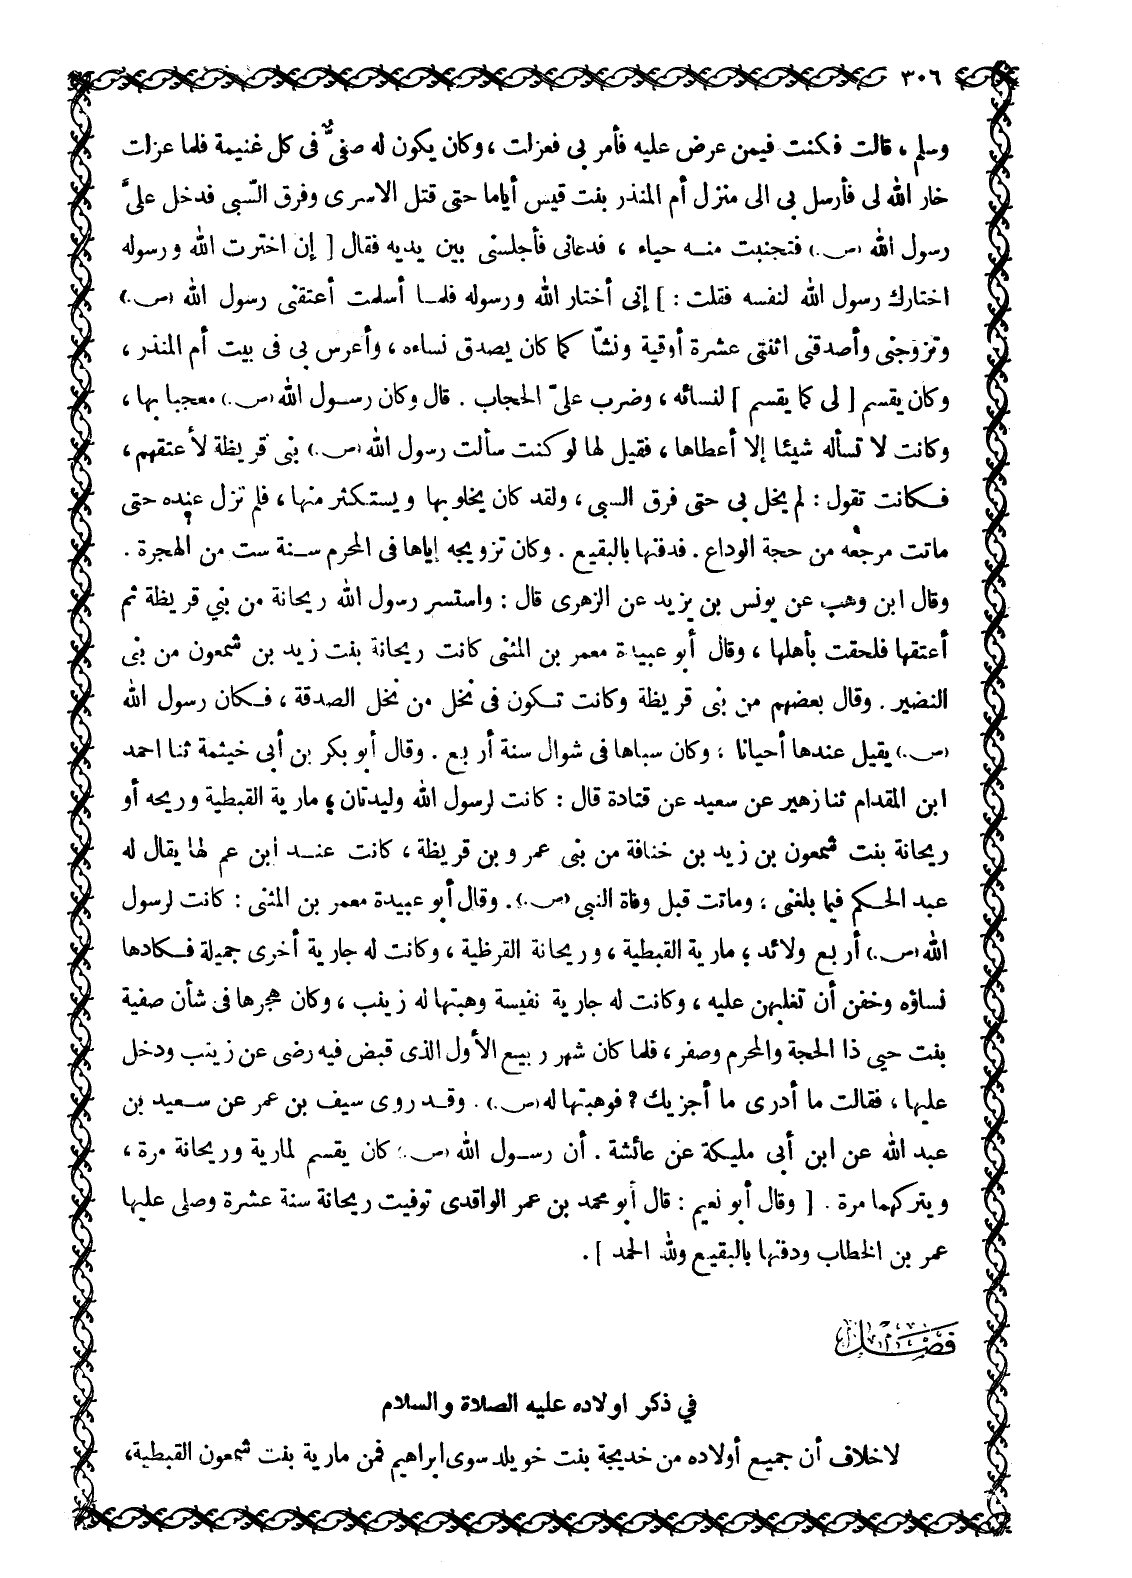 ٣٠٦
وسلم ، قالت فكنت فيمن عرض عليه فأمر بى فعزلت ، وكان يكون له صفىٌّ فى كل غنيمة فلما عزلت
خار الله لى فأرسل بى الى منزل أم المنذر بنت قيس أياما حتى قتل الاسرى وفرق السّبى فدخل علىَّ
رسول الله (ص.) فتجنبت منه حياء ، فدعانى فأجلسنى بين يديه فقال [ إن اخترت الله ورسوله
اختارك رسول الله لنفسه فقلت : ] إنى أختار الله ورسوله فلما أسلمت أعتقنى رسول الله (ص.)
وتزوجنى وأصدقنى اثنتى عشرة أوقية ونشّا كما كان يصدق نساءه ، وأعرس بى فى بيت أم المنذر ،
وكان يقسم [ لى كما يقسم ] لنسائه ، وضرب علىّ الحجاب . قال وكان رسول الله (ص.) معجبا بها ،
وكانت لا تسأله شيئا إلا أعطاها ، فقيل لها لو كنت سألت رسول الله (ص.) بنى قريظة لأعتقهم ،
فكانت تقول : لم يخل بى حتى فرق السبى ، ولقد كان يخلو بها ويستكثر منها ، فلم تزل عنده حتى
ماتت مرجعه من حجة الوداع . فدفنها بالبقيع . وكان تزويجه إياها فى المحرم سنة ست من الهجرة .
وقال ابن وهب عن يونس بن يزيد عن الزهرى قال : واستسر رسول الله ريحانة من بني قريظة ثم
أعتقها فلحقت بأهلها ، وقال أبو عبيدة معمر بن المثنى كانت ريحانة بنت زيد بن شمعون من بنى
النضير . وقال بعضهم من بنى قريظة وكانت تكون فى نخل من نخل الصدقة ، فكان رسول الله
(ص.) يقيل عندها أحيانا ، وكان سباها فى شوال سنة أربع . وقال أبو بكر بن أبى خيثمة ثنا احمد
ابن المقدام ثنا زهير عن سعيد عن قتادة قال : كانت لرسول الله وليدتان ؛ مارية القبطية وريحه أو
ريحانة بنت شمعون بن زيد بن خنافة من بنى عمرو بن قريظة ، كانت عند ابن عم لها يقال له
عبد الحكم فيما بلغنى ، وماتت قبل وفاة النبى (ص.). وقال أبو عبيدة معمر بن المثنى : كانت لرسول
الله (ص.) أربع ولائد ؛ مارية القبطية ، وريحانة القرظية ، وكانت له جارية أخرى جميلة فكادها
نساؤه وخفن أن تغلبهن عليه ، وكانت له جارية نفيسة وهبتها له زينب ، وكان هجرها فى شأن صفية
بنت حيى ذا الحجة والمحرم وصفر ، فلما كان شهر ربيع الأول الذى قبض فيه رضى عن زينب ودخل
عليها ، فقالت ما أدرى ما أجزيك ؟ فوهبتها له (ص.) . وقد روى سيف بن عمر عن سعيد بن
عبد الله عن ابن أبى مليكة عن عائشة . أن رسول الله (ص.) كان يقسم لمارية وريحانة مرة ،
ويتركهما مرة . [ وقال أبو نعيم : قال أبو محمد بن عمر الواقدى توفيت ريحانة سنة عشرة وصلى عليها
عمر بن الخطاب ودفنها بالبقيع ولله الحمد ] .
فصل
في ذكر اولاده عليه الصلاة والسلام
لا خلاف أن جميع أولاده من خديجة بنت خويلد سوى ابراهيم فمن مارية بنت شمعون القبطية،